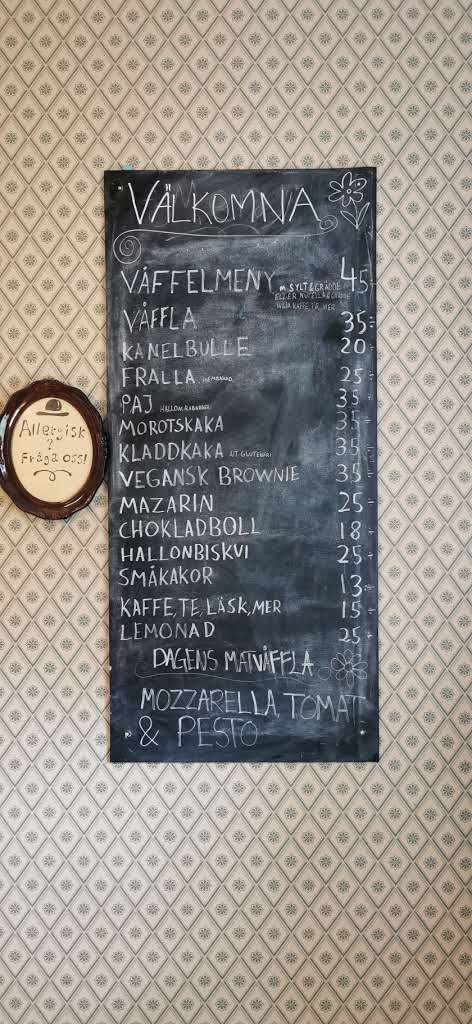 VÄLKOMNA
VÅFFELMENY m SYLT & GRÄDDE 45:-
ELLER NUTELLA & GRÄDDE
KAFFE, TE, MER
VÅFFLA 35:-
KANELBULLE 20:-
FRALLA 25:-
PAJ HALLON, RABARBER 35:-
MOROTSKAKA 35:-
KLADDKAKA GLUTENFRI 35:-
VEGANSK BROWNIE 35:-
MAZARIN 25:-
CHOKLADBOLL 18:-
HALLONBISKVI 25:-
SMÅKAKOR 13:-
KAFFE, TE, LÄSK, MER 15:-
LEMONAD 25:-
DAGENS MATVÅFFLA
MOZZARELLA, TOMAT
& PESTO
Allergisk
?
Fråga oss!